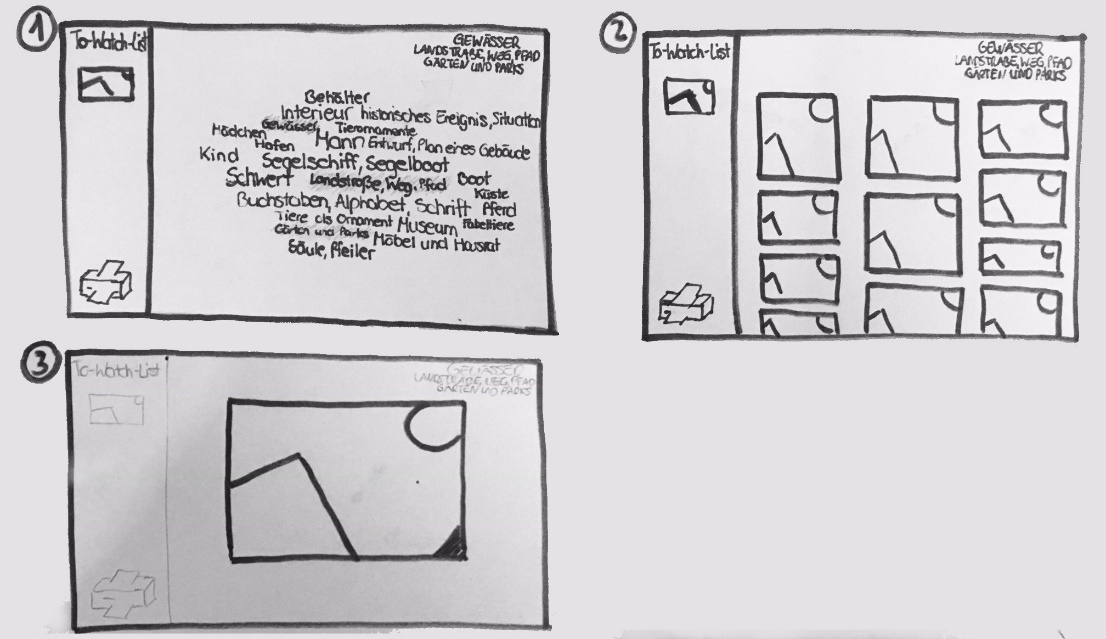 1
To-Watch-List
GEWÄSSER
LANDSTRAẞE, WEG, PFAD
GÄRTEN UND PARKS
Behälter
Interieur historisches Ereignis, Situation
Gewässer Tierornamente
Mädchen Hafen Mann Entwurf, Plan eines Gebäude
Kind Segelschiff, Segelboot
Schwert Landstraße, Weg, Pfad Boot
Küste
Buchstaben, Alphabet, Schrift Pferd
Tiere als Ornament Museum Fabeltiere
Gärten und Parks Möbel und Hausrat
Säule, Pfeiler
2
To-Watch-List
GEWÄSSER
LANDSTRAẞE, WEG, PFAD
GÄRTEN UND PARKS
3
To-Watch-List
GEWÄSSER
LANDSTRAẞE, WEG, PFAD
GÄRTEN UND PARKS